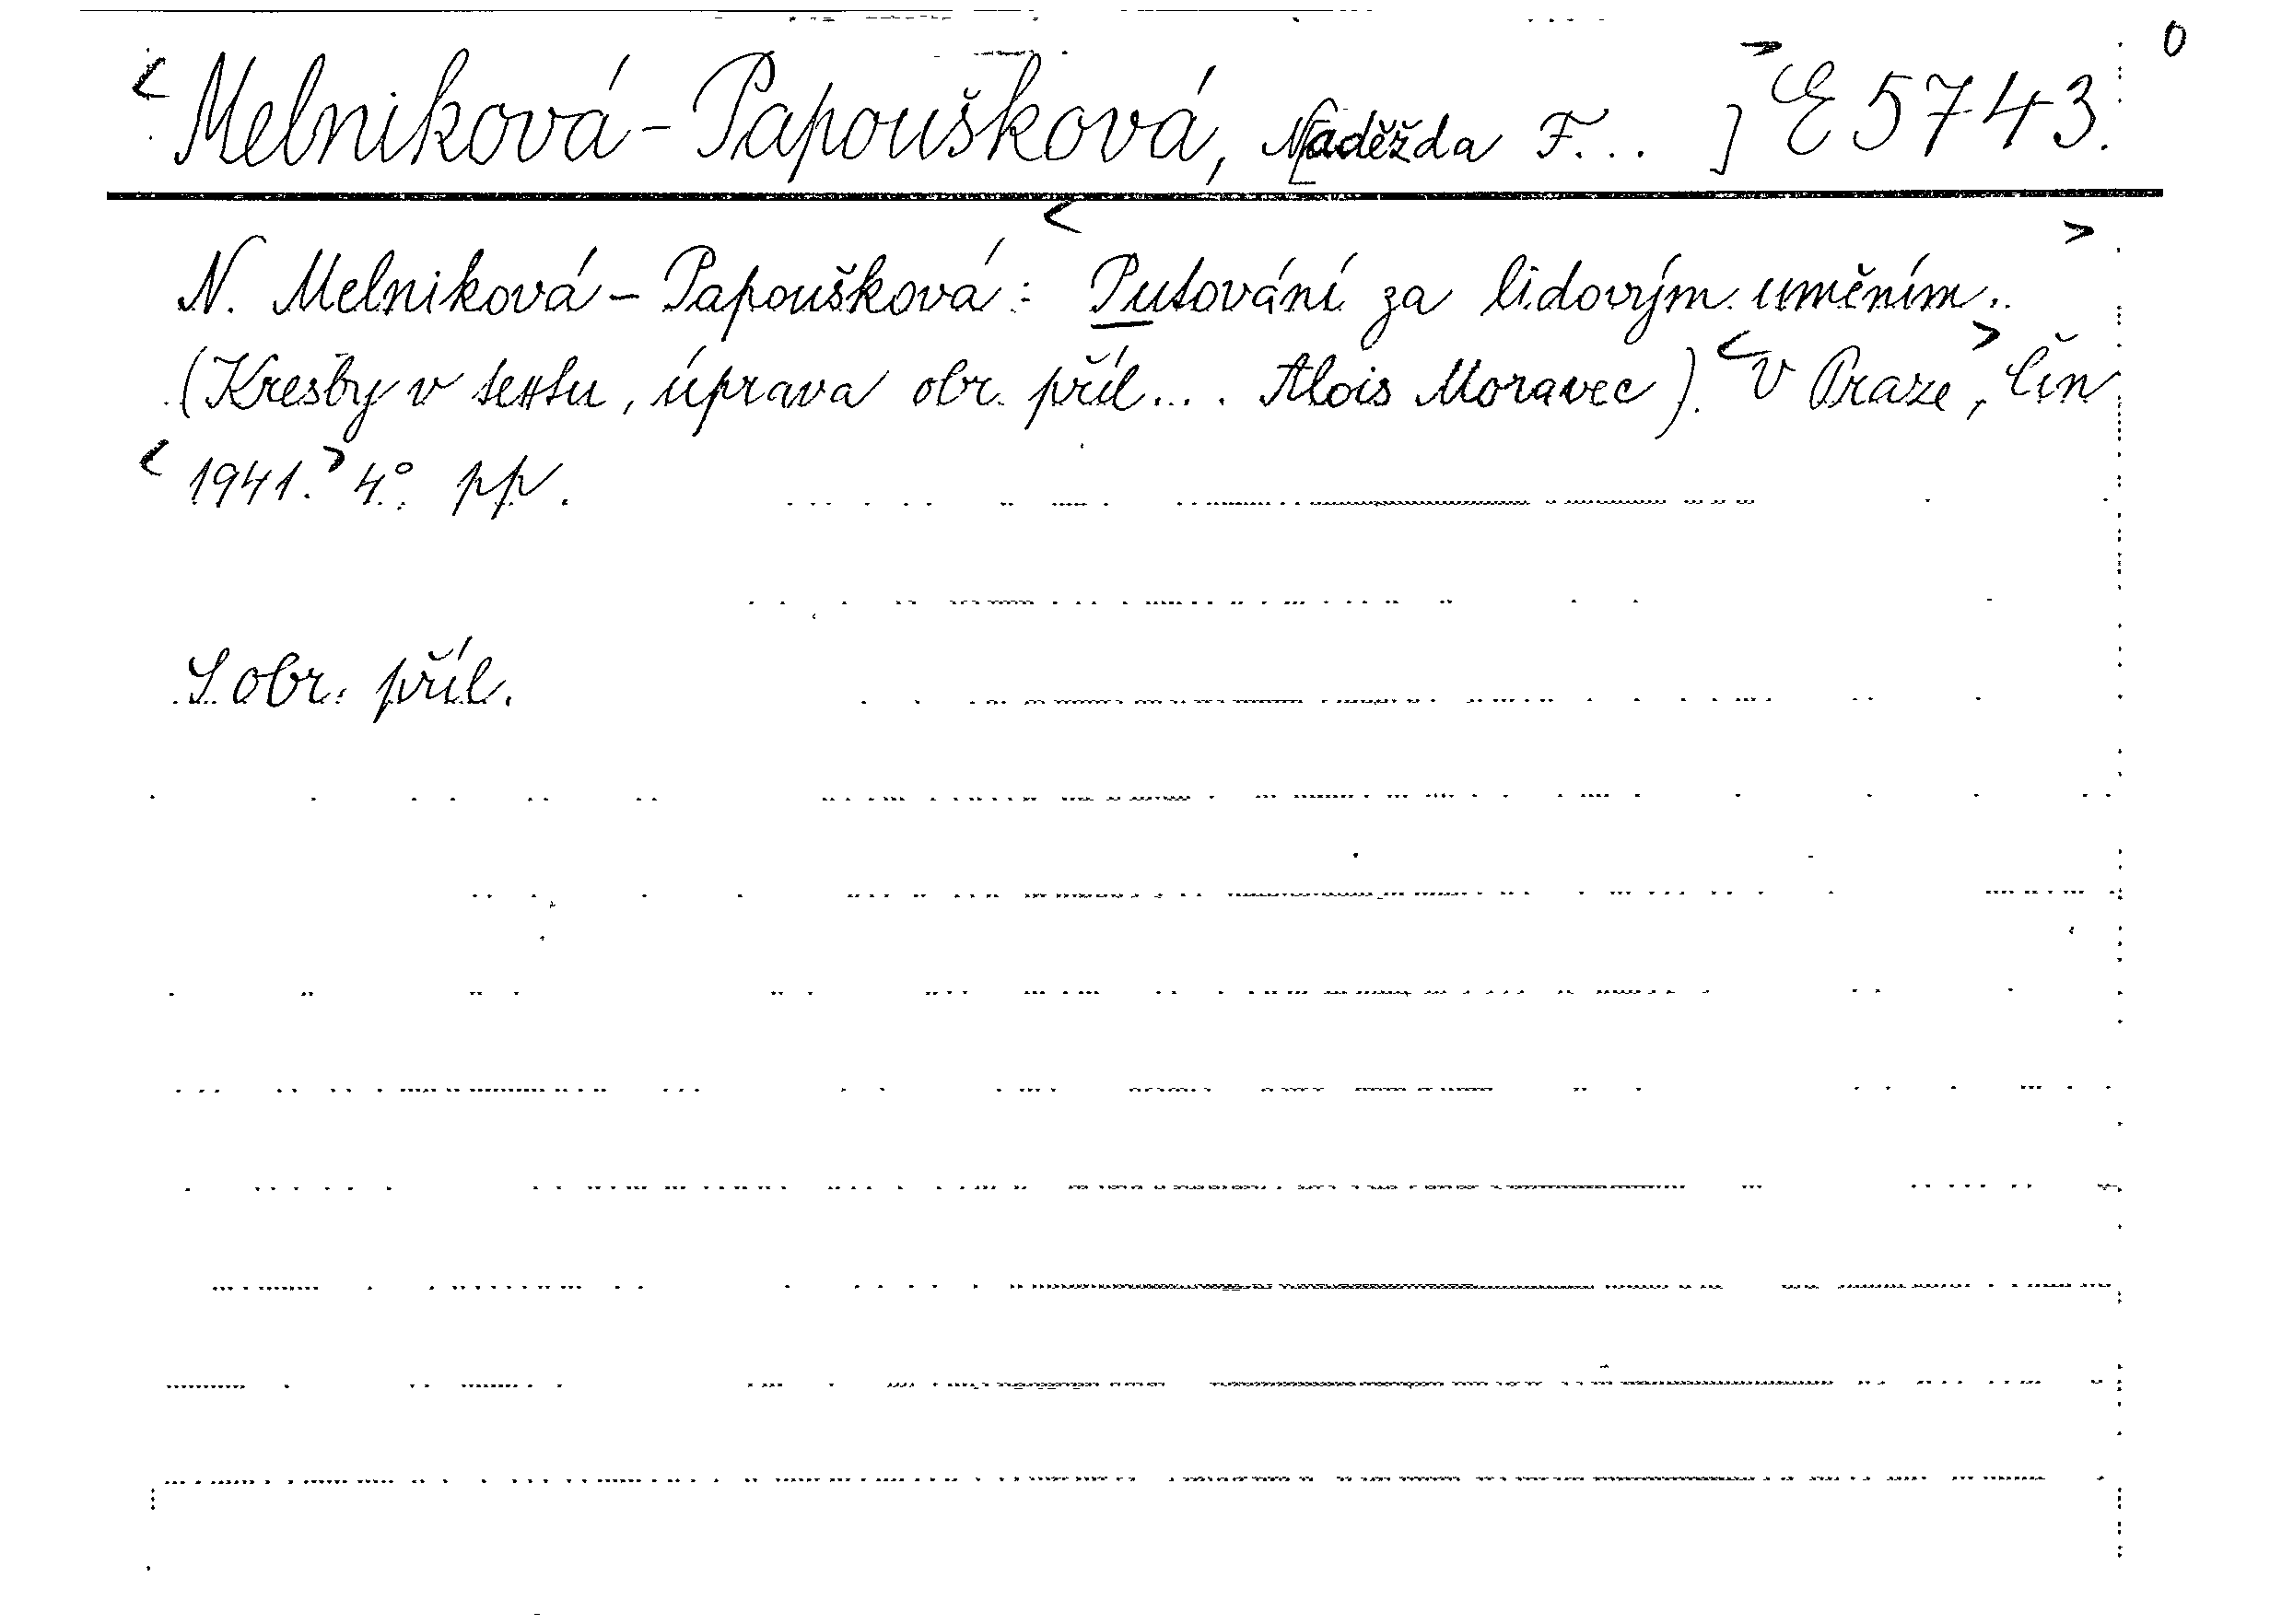 <Melniková-Papoušková, N[aděžda F... ] > E 5743. 0
N. Melniková-Papoušková: <Putování za lidovým uměním.>
(Kresby v textu, úprava obr. příl.... Alois Moravec). <V Praze>, Čin
<1941.> 4° pp.
S obr. příl.